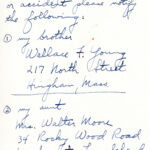 or accident please notify
the following:
① my brother
Wallace F. Young
217 North Street
Hingham, Mass
② my aunt
Mrs. Walter Moore
34 Rocky Wood Road